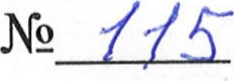 № 115